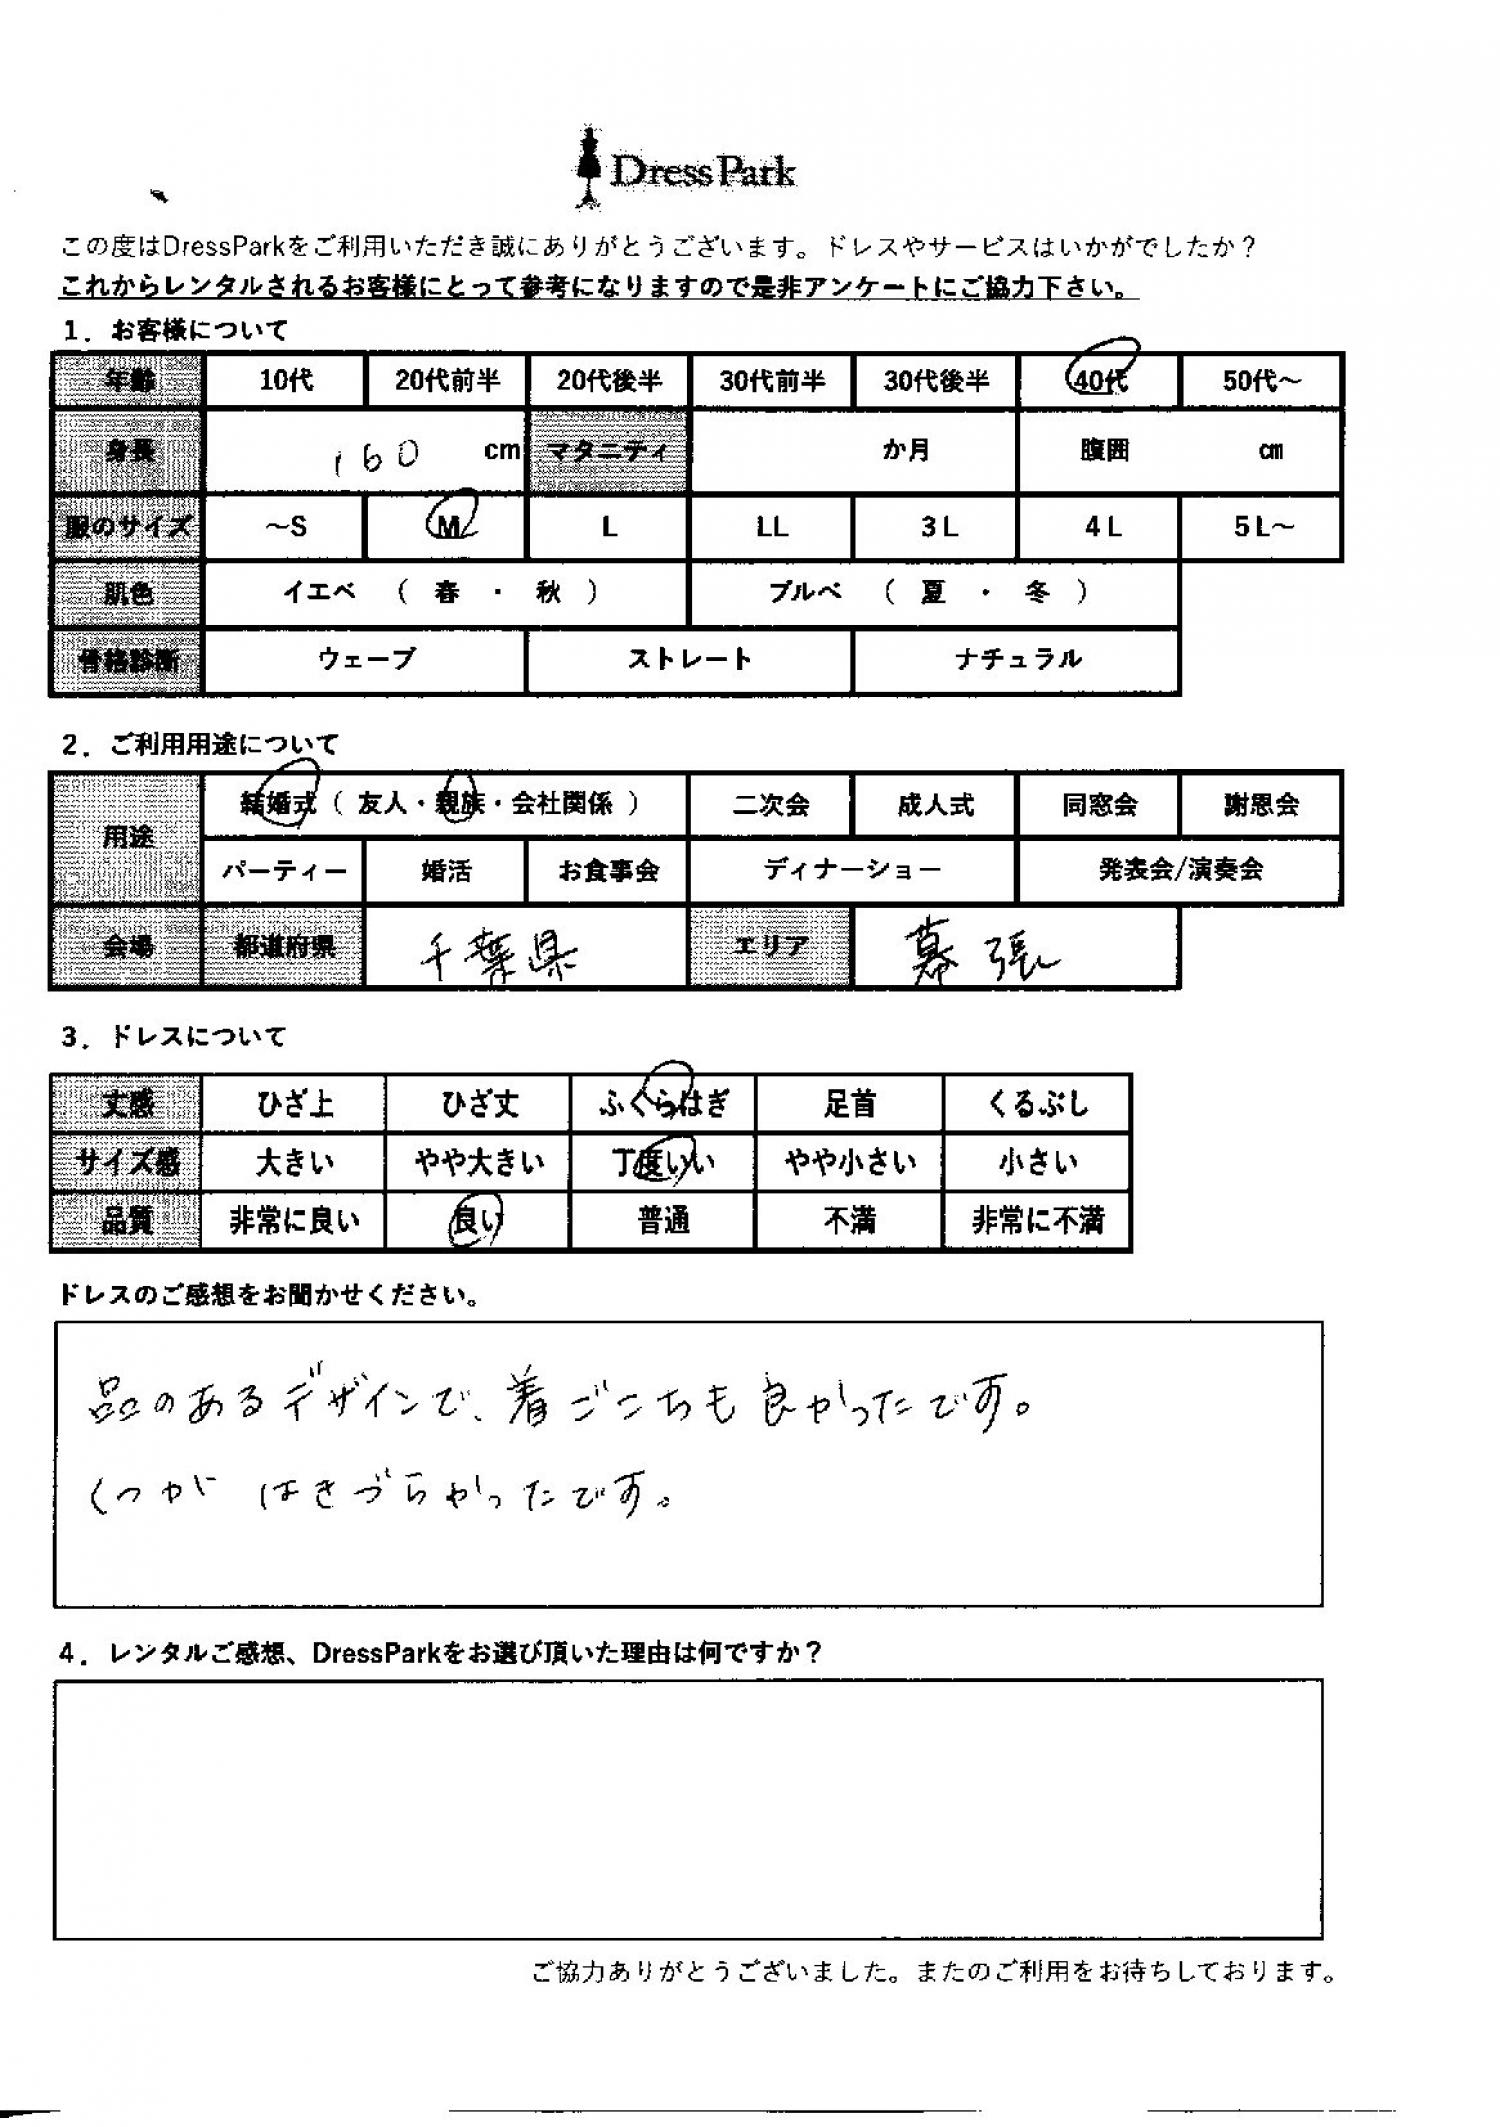 DressPark
この度はDressParkをご利用いただき誠にありがとうございます。ドレスやサービスはいかがでしたか？
これからレンタルされるお客様にとって参考になりますので是非アンケートにご協力下さい。
1．お客様について
年齢 10代 20代前半 20代後半 30代前半 30代後半 40代 50代～
身長 160 cm マタニティ か月 腹囲 ㎝
服のサイズ ～S M L LL 3L 4L 5L～
肌色 イエベ （ 春 ・ 秋 ） ブルベ （ 夏 ・ 冬 ）
骨格診断 ウェーブ ストレート ナチュラル
2．ご利用用途について
用途 結婚式（ 友人・親族・会社関係 ） 二次会 成人式 同窓会 謝恩会
パーティー 婚活 お食事会 ディナーショー 発表会/演奏会
会場 都道府県 千葉県 エリア 幕張
3．ドレスについて
丈感 ひざ上 ひざ丈 ふくらはぎ 足首 くるぶし
サイズ感 大きい やや大きい 丁度いい やや小さい 小さい
品質 非常に良い 良い 普通 不満 非常に不満
ドレスのご感想をお聞かせください。
品のあるデザインで、着ごこちも良かったです。
くつが はきづらかったです。
4．レンタルご感想、DressParkをお選び頂いた理由は何ですか？
ご協力ありがとうございました。またのご利用をお待ちしております。